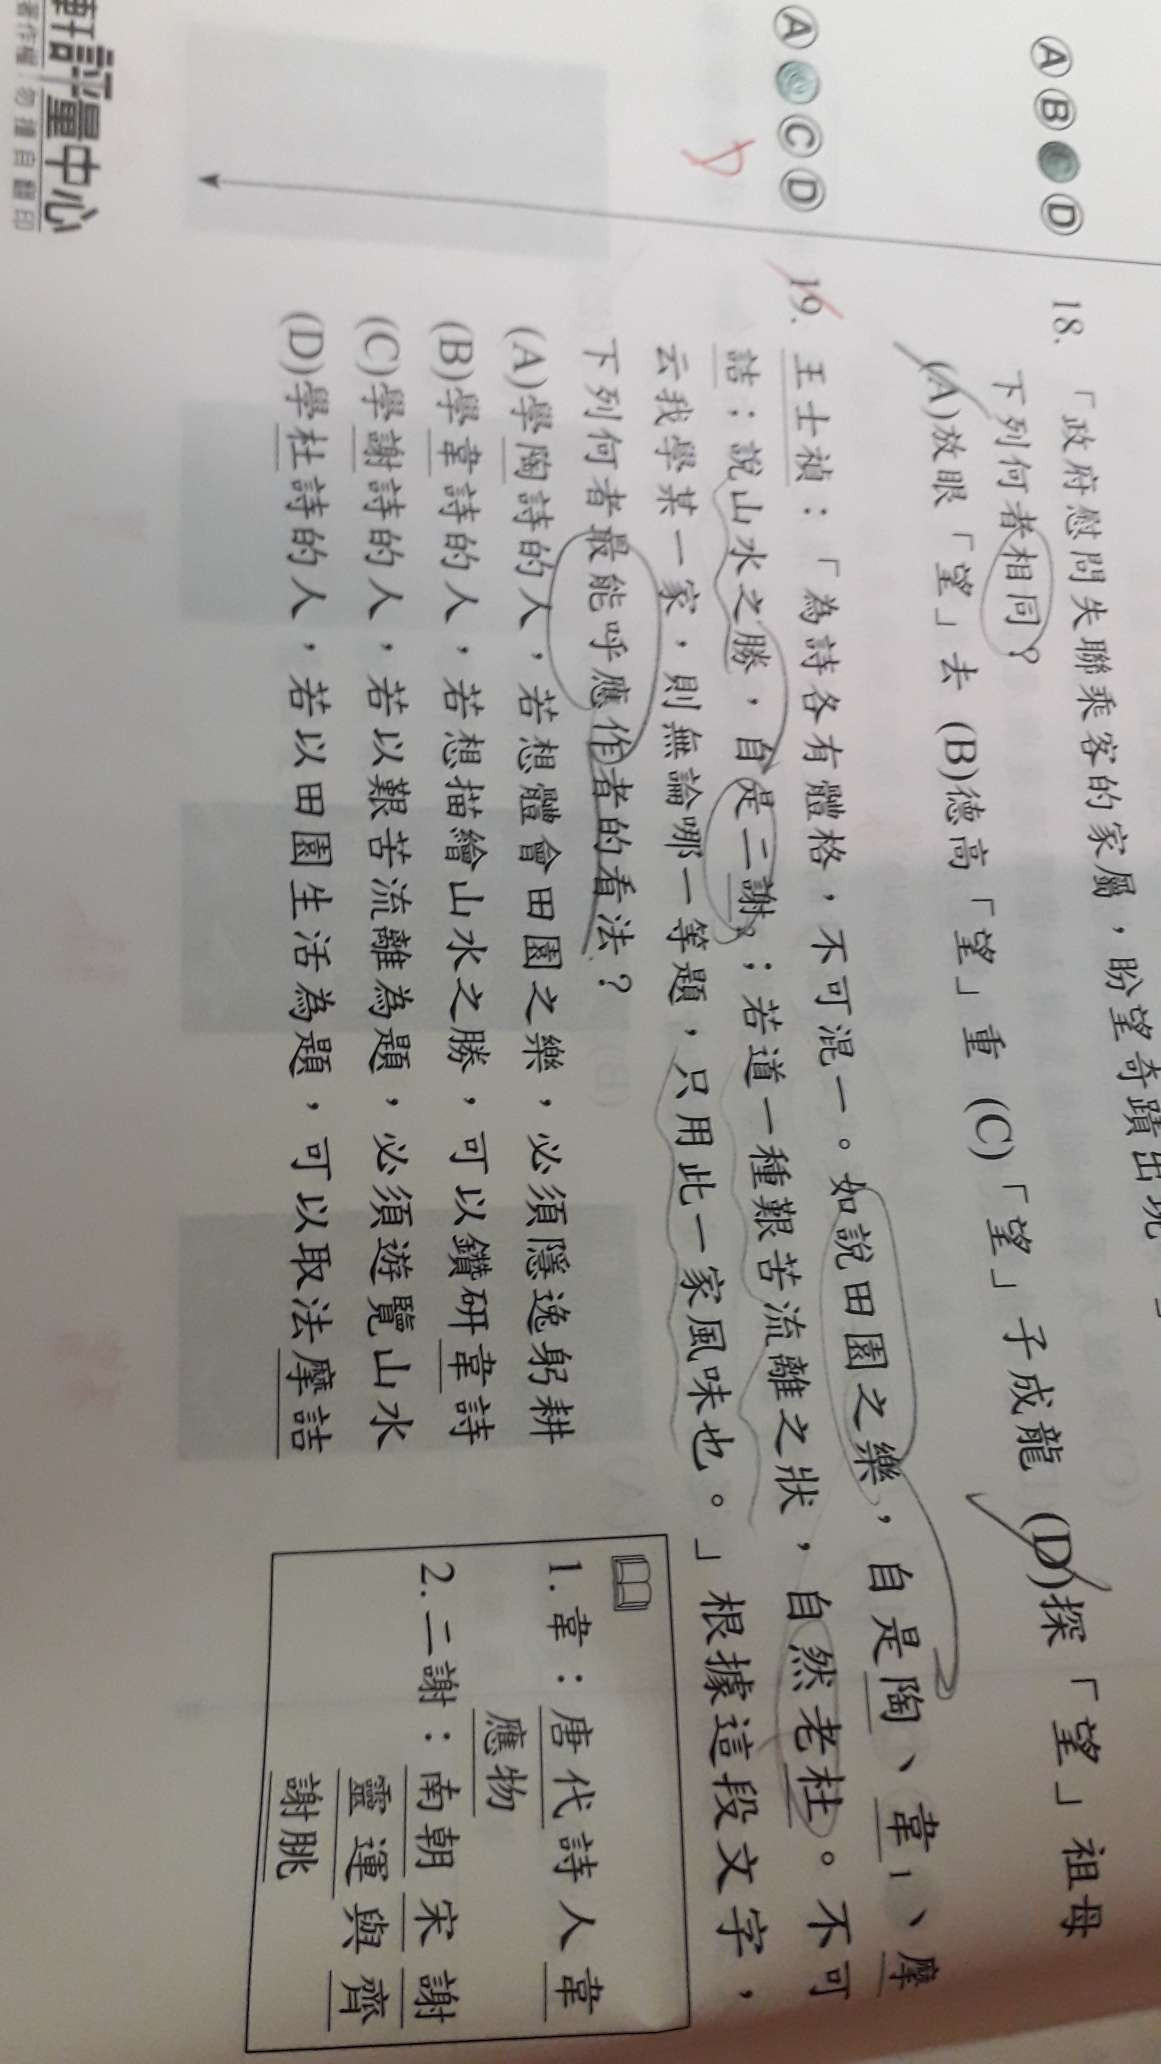 ⒶⒷ●Ⓓ
18.「政府慰問失聯乘客的家屬，盼望奇蹟出現
下列何者相同？
(A)放眼「望」去 (B)德高「望」重 (C)「望」子成龍 (D)探「望」祖母
Ⓐ●ⒸⒹ
D
19.王士禎：「為詩各有體格，不可混一。如說田園之樂，自是陶、韋1、摩
詰；說山水之勝，自是二謝2；若道一種艱苦流離之狀，自然老杜。不可
云我學某一家，則無論哪一等題，只用此一家風味也。」根據這段文字，
下列何者最能呼應作者的看法？
(A)學陶詩的人，若想體會田園之樂，必須隱逸躬耕
(B)學韋詩的人，若想描繪山水之勝，可以鑽研韋詩
(C)學謝詩的人，若以艱苦流離為題，必須遊覽山水
(D)學杜詩的人，若以田園生活為題，可以取法摩詰
1.韋：唐代詩人韋
應物
2.二謝：南朝宋謝
靈運與齊
謝朓
評量中心
著作權．勿擅自翻印